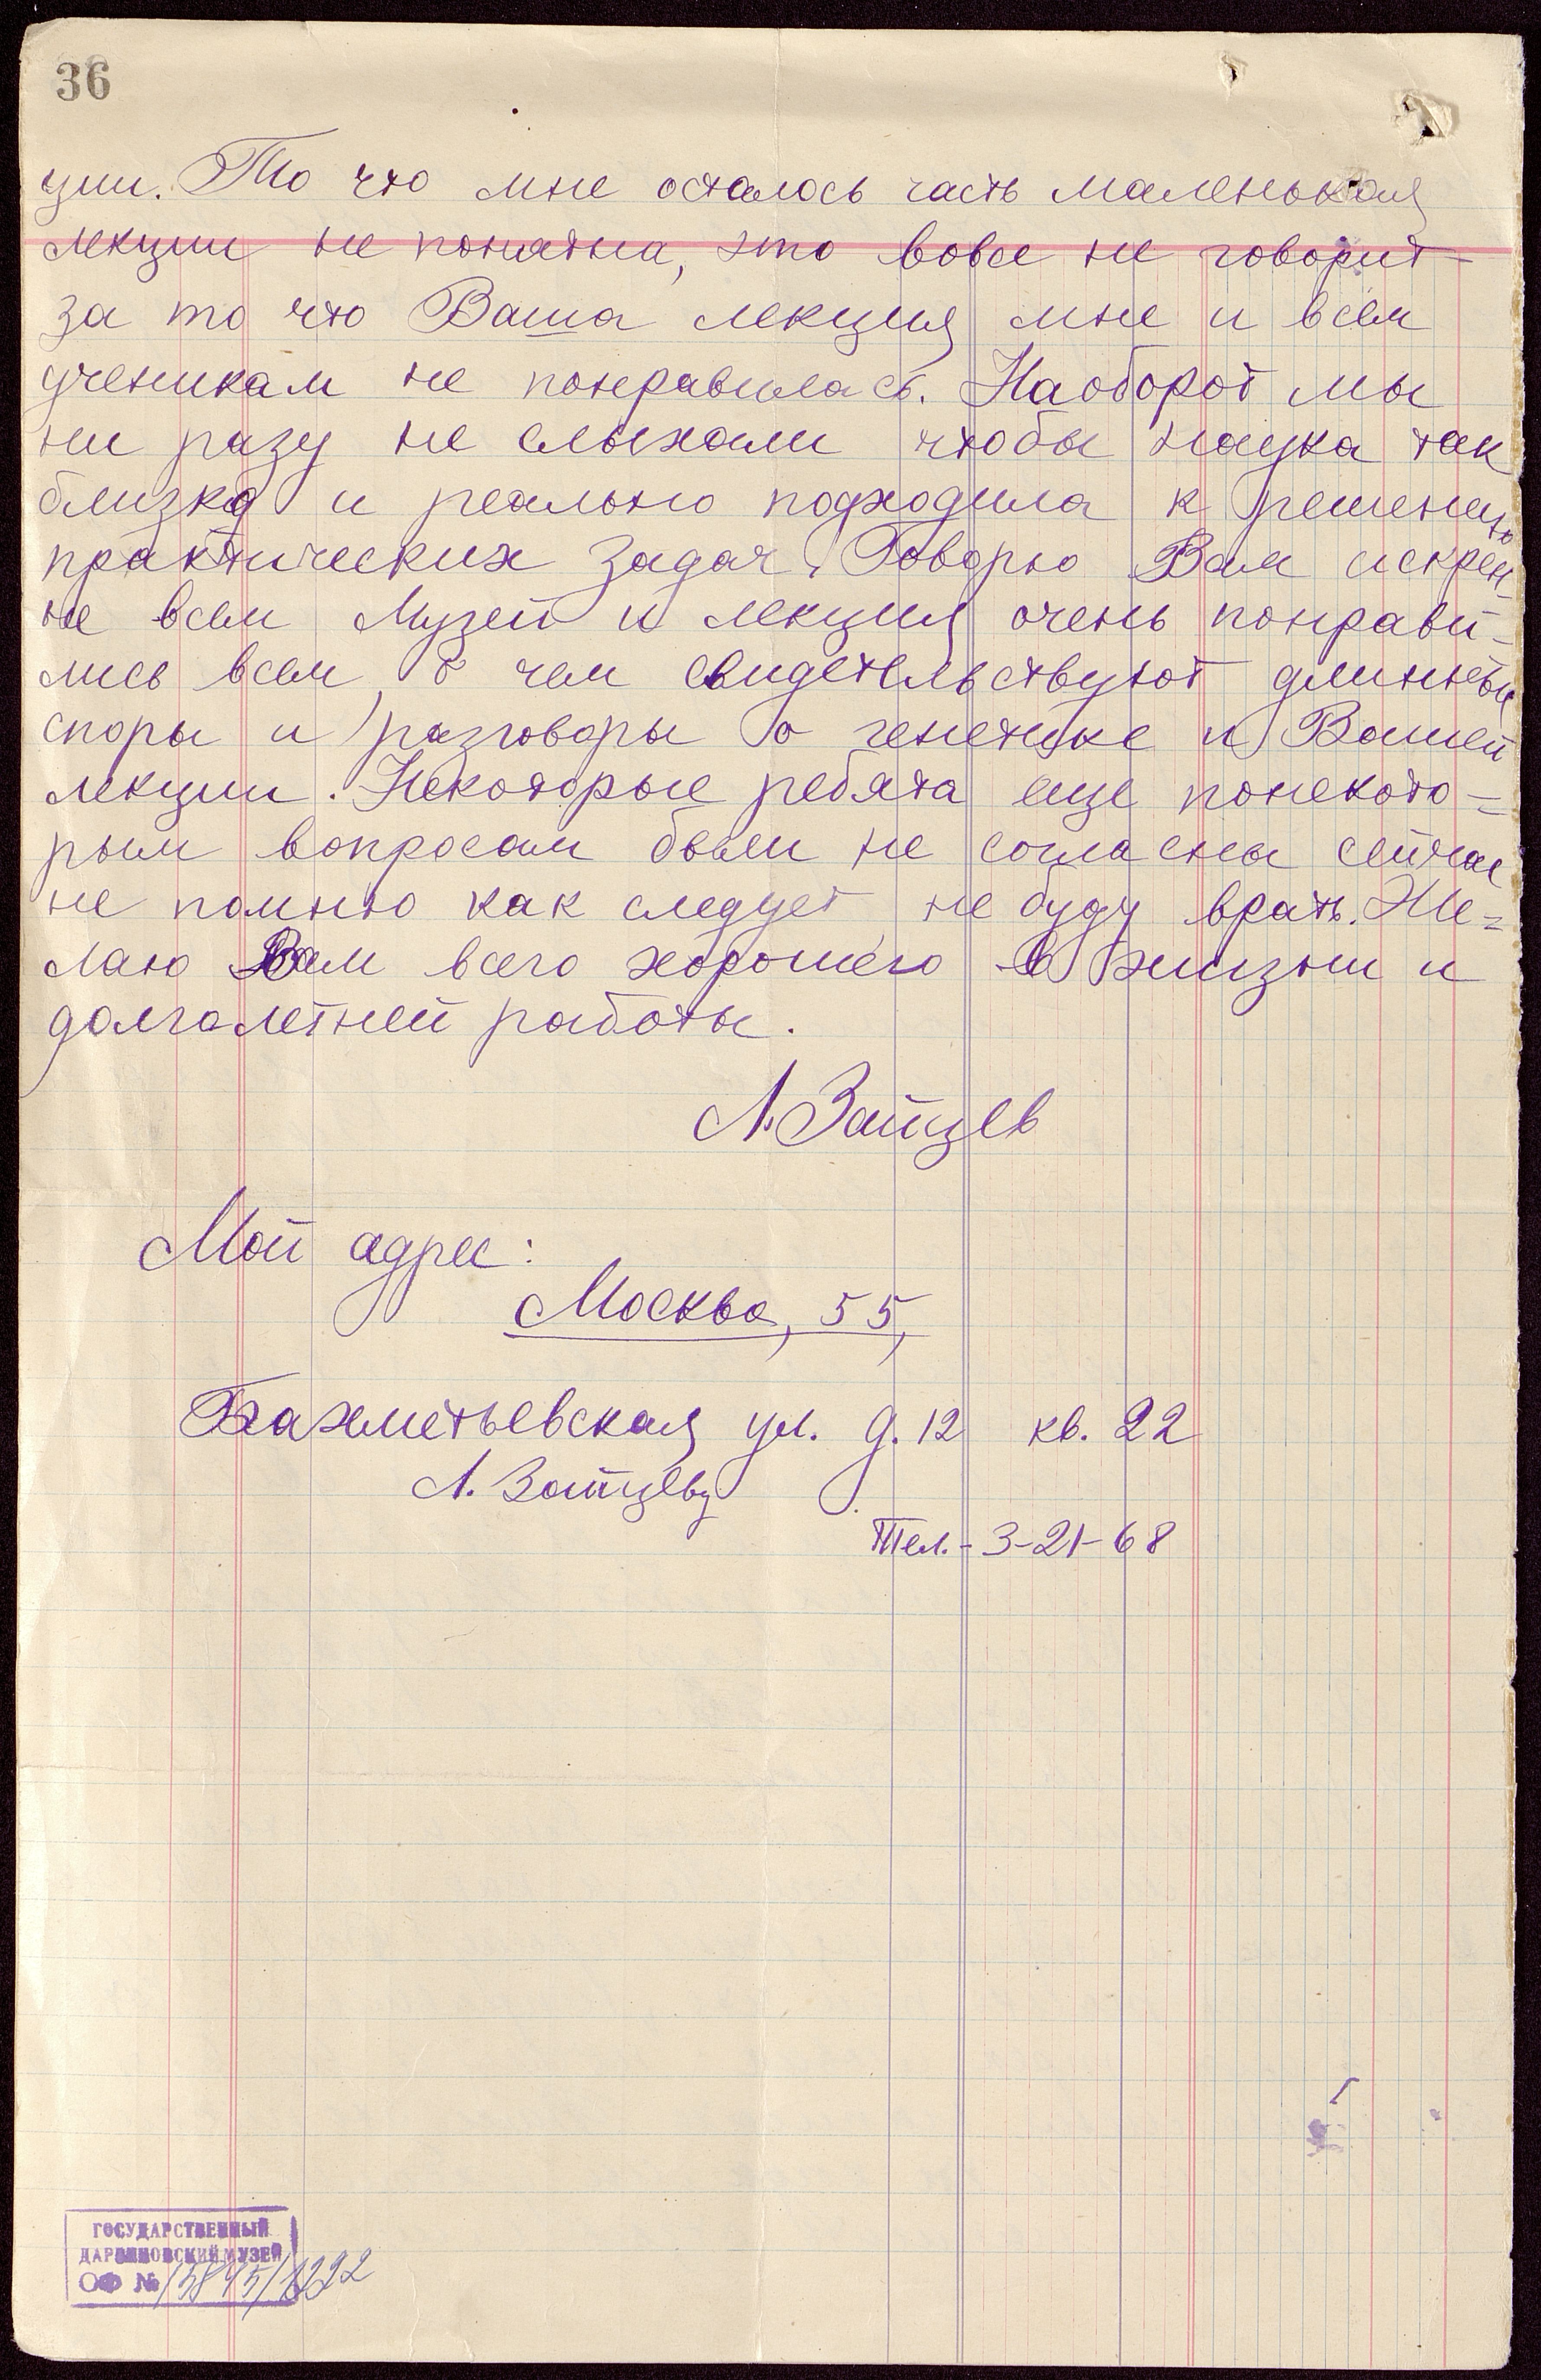 36
ции. То что мне осталось часть маленькая
лекции не понятна, это вовсе не говорит
за то что Ваша лекция мне и всем
ученикам не понравилась. Наоборот мы
ни разу не слыхали чтобы наука так
близко и реально подходила к решению
практических задач. Говорю Вам искрен-
не всем Музей и лекция очень понрави-
лись всем, о чем свидетельствуют длинные
споры и разговоры о генетике и Вашей
лекции. Некоторые ребята еще понекото=
рым вопросам были не согласны сейчас
не помню как следует, не буду врать. Же=
лаю Вам всего хорошего в жизни и
долголетней работы.
Л. Зайцев
Мой адрес:
Москва, 55,
Бахметьевская ул. д. 12 кв. 22
Л. Зайцеву
Тел. - 3-21-68
ГОСУДАРСТВЕННЫЙ
ДАРВИНОВСКИЙ МУЗЕЙ
ОФ №